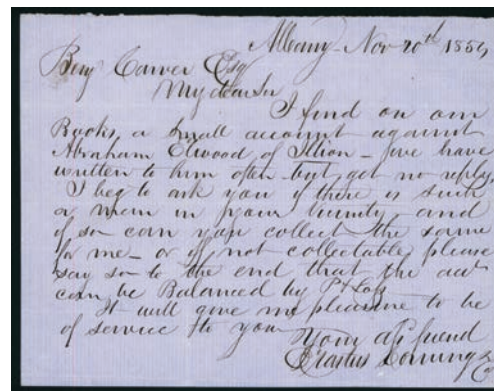 Albany Nov 20th 1854
Benj Carver Esq
My dear Sir
I find on our
Books, a small account against
Abraham Elwood of Illion - have
written to him often but get no reply,
I beg to ask you if there is such
a man in your vicinity and
if so can you collect the same
for me - or if not collectable please
say so to the end that the acct
can be Balanced by P & Loss
It will give me pleasure to be
of service to you
Your friend
Erastus Corning & Co